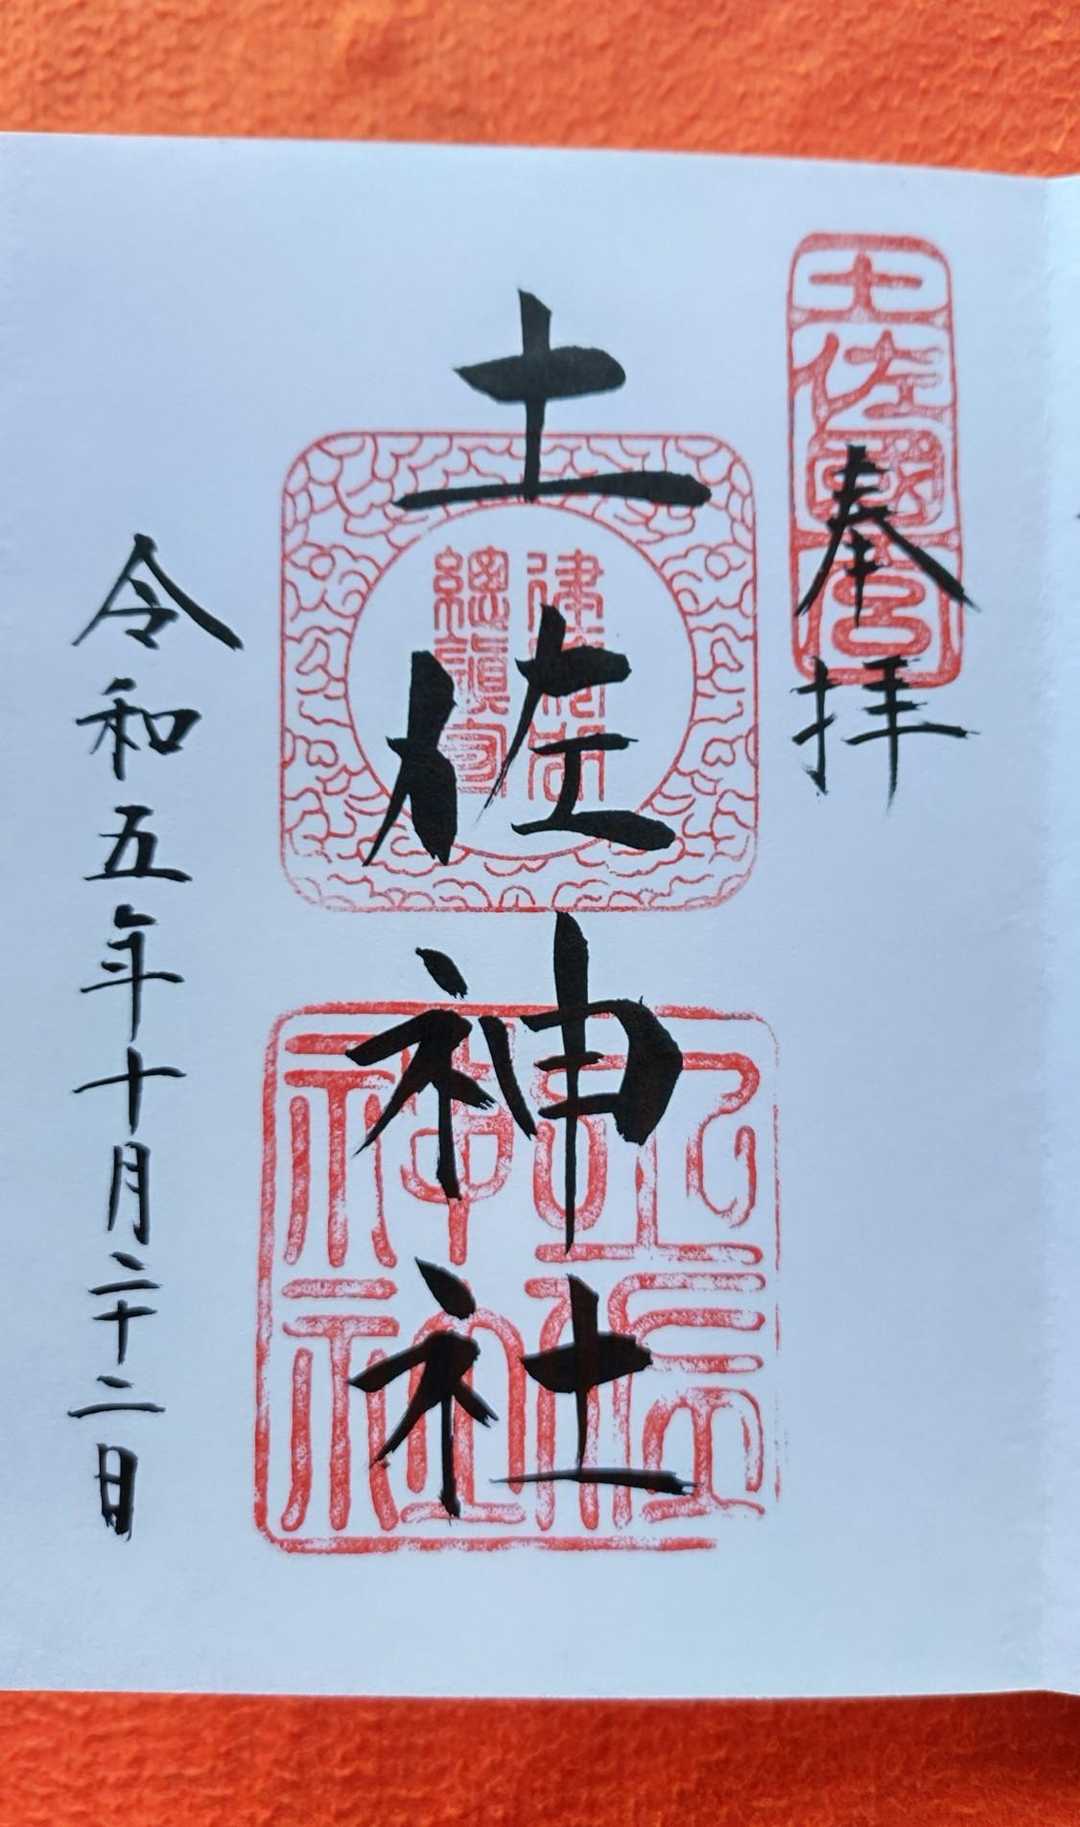 土佐國一宮
奉拝
土佐神社
總鎮守
土佐神社
令和五年十月二十二日